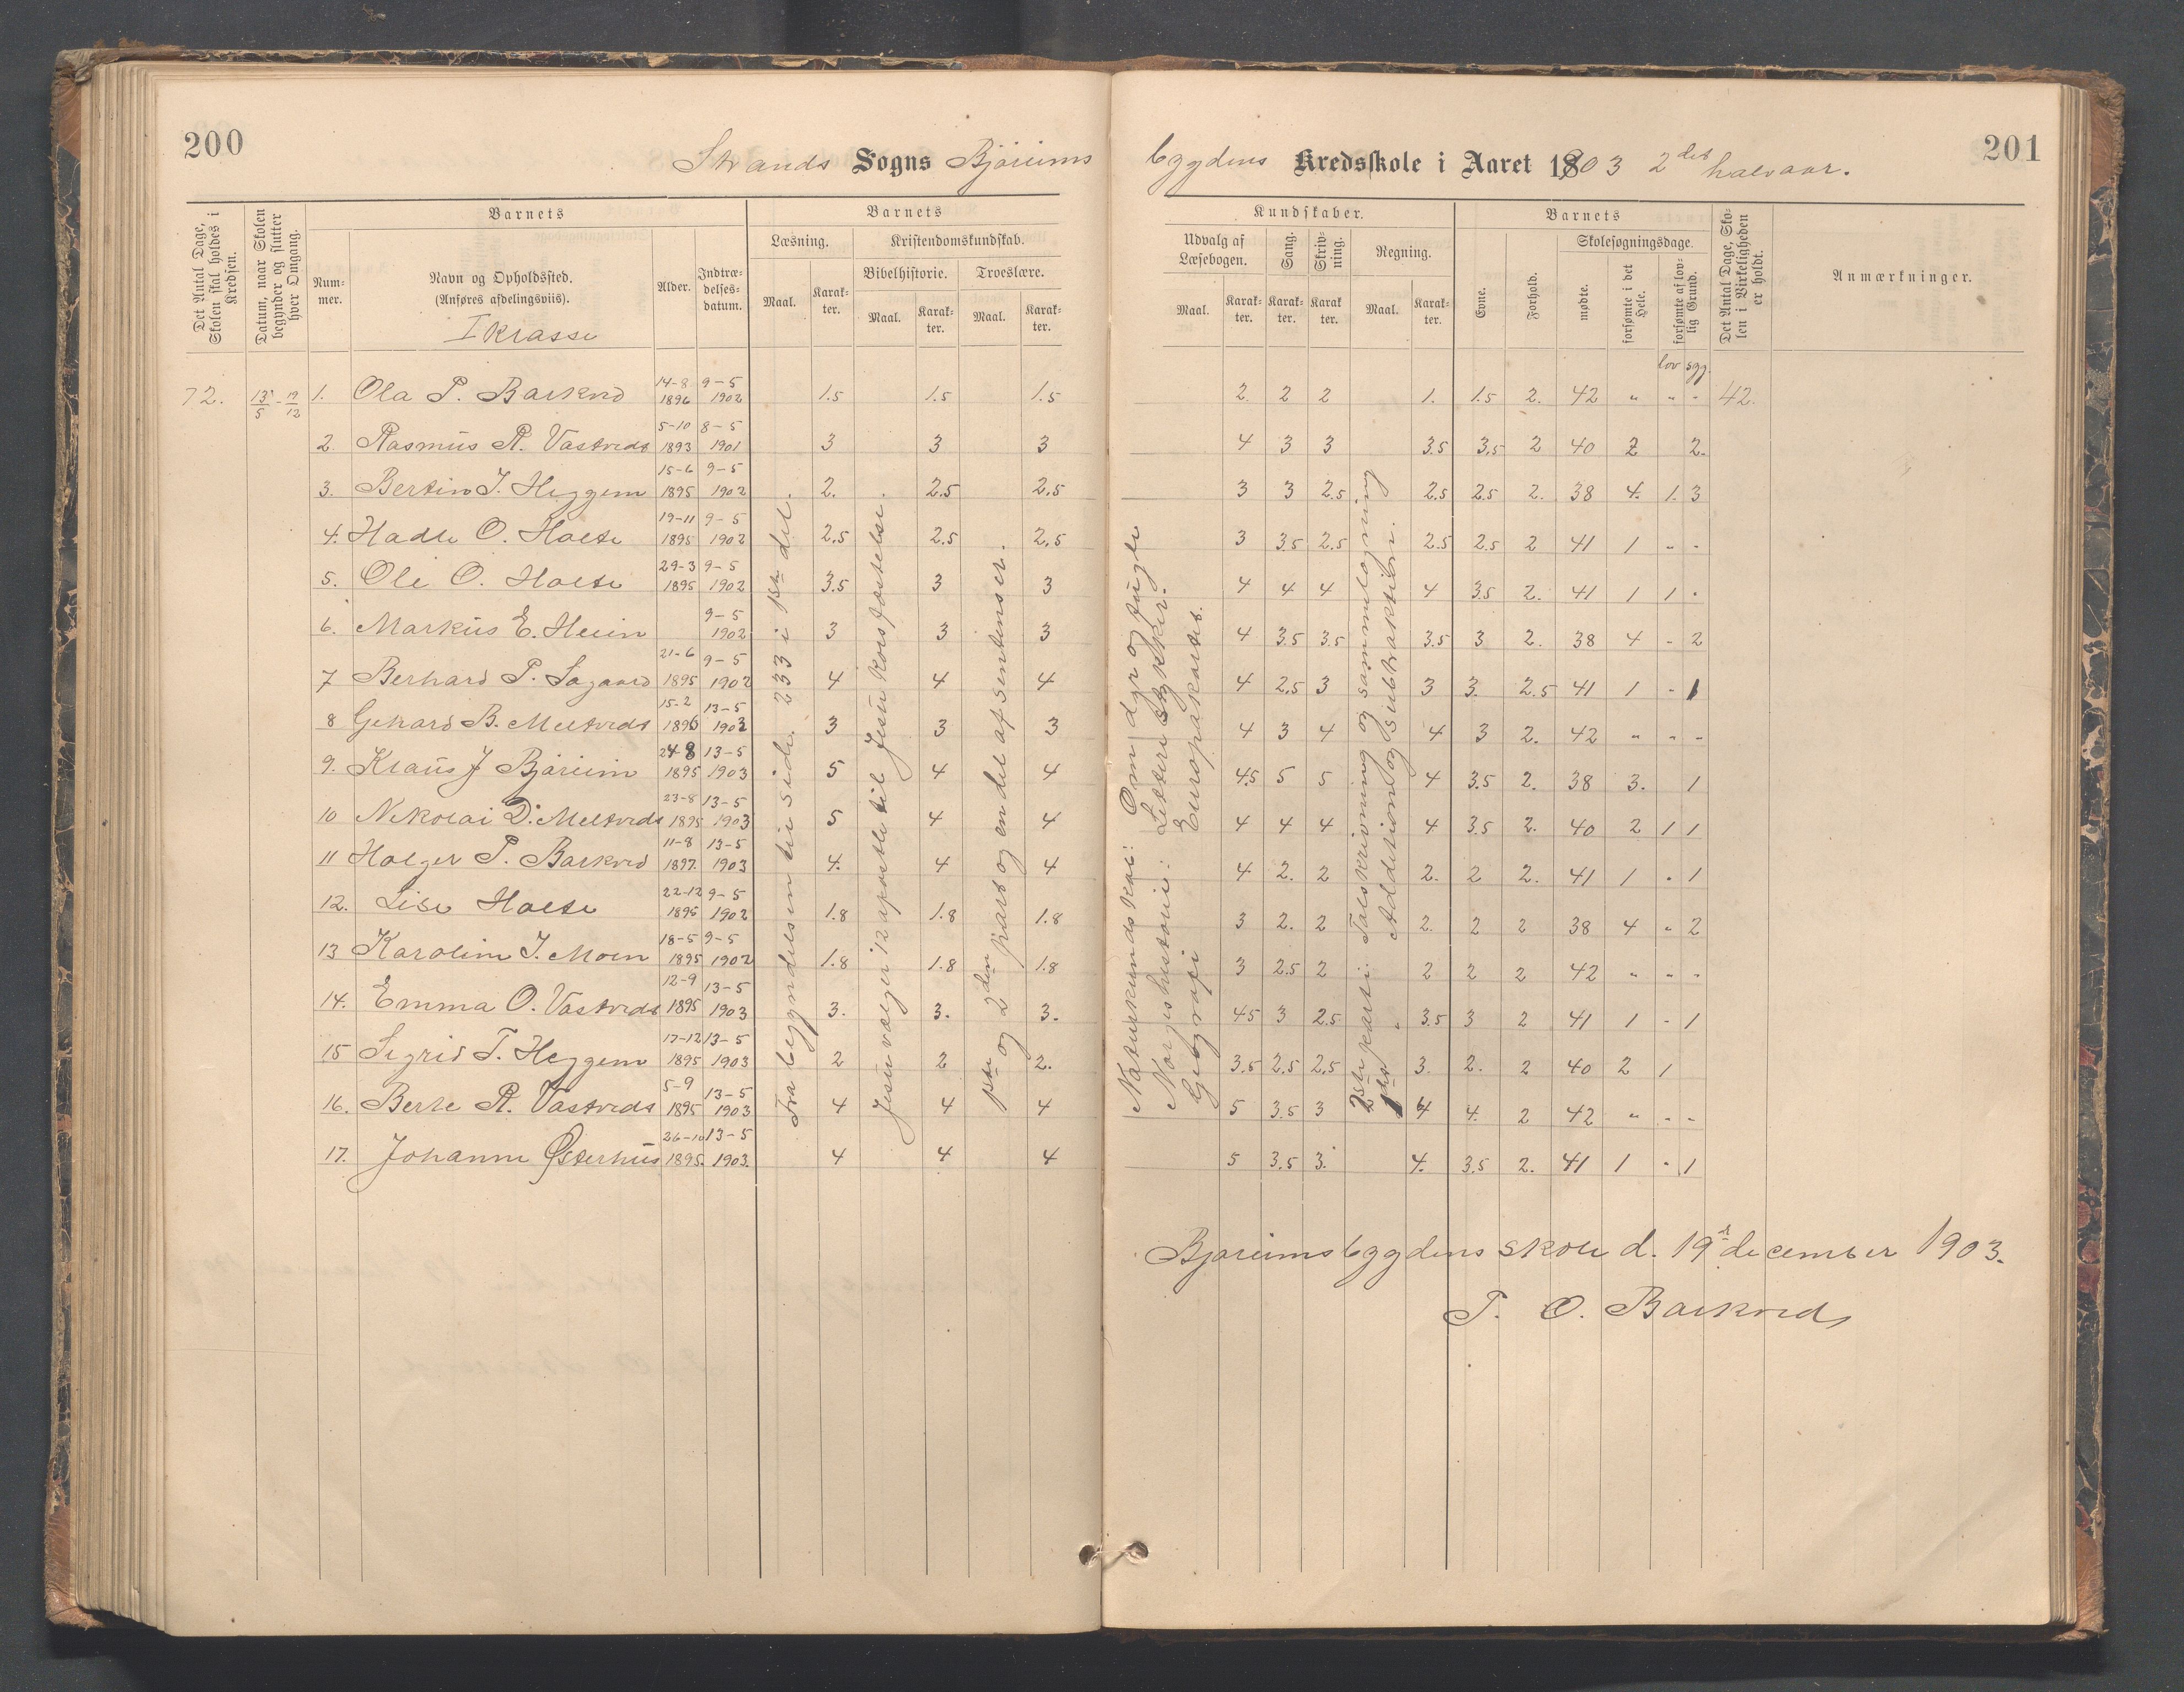 200
Strands Sogns Bjøreims
bygdens Kredsskole i Aaret 1903 2det halvaar.
201
Det Antal Dage, Skolen skal holdes i Kredsen.
Datum, naar Skolen begynder og slutter hver Omgang.
Barnets
Nummer.
Navn og Opholdssted.
(Anføres afdelingsviis).
I Klasse
Alder.
Indtrædelsesdatum.
Barnets
Læsning.
Kristendomskundskab.
Bibelhistorie.
Troeslære.
Maal.
Karakter.
Maal.
Karakter.
Maal.
Karakter.
Kundskaber.
Udvalg af Læsebogen.
Sang.
Skrivning.
Regning.
Maal.
Karakter.
Karakter.
Karakter.
Maal.
Karakter.
Barnets
Evne.
Forhold.
Skolesøgningsdage.
mødte.
forsømte i det Hele.
forsømte af lovlig Grund.
lov syg.
Det Antal Dage, Skolen i Virkeligheden er holdt.
Anmærkninger.
72. 13/5 - 19/12 1. Ola P. Barkvd 14-8 1896 9-5 1902 1.5 1.5 1.5 2. 2 2 1. 1.5 2. 42 " " - 42.
2. Rasmus R. Vastveds 5-10 1893 8-5 1901 3 3 3 4 3 3 3.5 3.5 2 40 2 2.
3. Bertin J. Heggem 15-6 1895 9-5 1902 2. 2.5 2.5 3 3 2.5 2.5 2.5 2. 38 4. 1. 3
4. Hadle O. Holte 19-11 1895 9-5 1902 2.5 2.5 2.5 3 3.5 2.5 2.5 2.5 2 41 1 " -
5. Ole O. Holte 29-3 1895 9-5 1902 3.5 3 3 4 4 4 4 3.5 2. 41 1 1 .
6. Markus E. Heiin 9-5 1902 3 3 3 4 3.5 3.5 3.5 3 2. 38 4 - 2
7 Berhard P. Sagaard 21-6 1895 9-5 1902 4 4 4 4 2.5 3 3 3. 2.5 41 1 - 1
8 Gehard B. Meltveds 15-2 1896 13-5 1903 3 3 3 4 3 4 4 3 2. 42 " " -
9. Klaus J Bjøreim 24-8 1895 13-5 1903 5 4 4 4.5 5 5 4 3.5 2. 38 3. 1
10 Nikolai D. Meltveds 23-8 1895 13-5 1903 5 4 4 4 4 4 4 3.5 2. 40 2 1 1
11 Holger P. Barkved 11-8 1897. 13-5 1903 4. 4 4 4 2. 2 2. 2 2. 41 1 . 1
12. Lise Holte 22-12 1895 9-5 1902 1.8 1.8 1.8 3 2. 2 2. 2 2 38 4 " 2
13 Karoline J. Moen 18-5 1895 9-5 1902 1.8 1.8 1.8 3 2.5 2 2 2 2 42 " " -
14. Emma O. Vastveds 12-9 1895 13-5 1903 3. 3. 3. 4.5 3 2.5 3.5 3 2 41 1 - 1
15 Sigrid T. Heggem 17-12 1895 13-5 1903 2 2 2. 3.5 2.5 2.5 3. 2. 2 40 2 1
16. Berte R. Vastveds 5-9 1895 13-5 1903 4 4 4 5 3.5 3 4 4. 2 42 " - -
17. Johanne Østerhus 26-10 1895. 13-5 1903. 4 4 4 5 3.5 3. 4. 3.5 2. 41 1 - 1
Fra begyndelsen til side 233 i 1ste del.
Jesu vælger 12 apostle til Jesu Korsfæstelse.
1ste og 2den part og en del af sentenser.
Naturkundskab: Om dyr og fugle
Norgeshistorie: Lettere stykker.
Geografi Europakartet.
2ste parti: Talskrivning og sammenlægning
1ste " Addition og Substraktion.
Bjøreimsbygdens skole d. 19de december 1903.
T. O. Barkveds